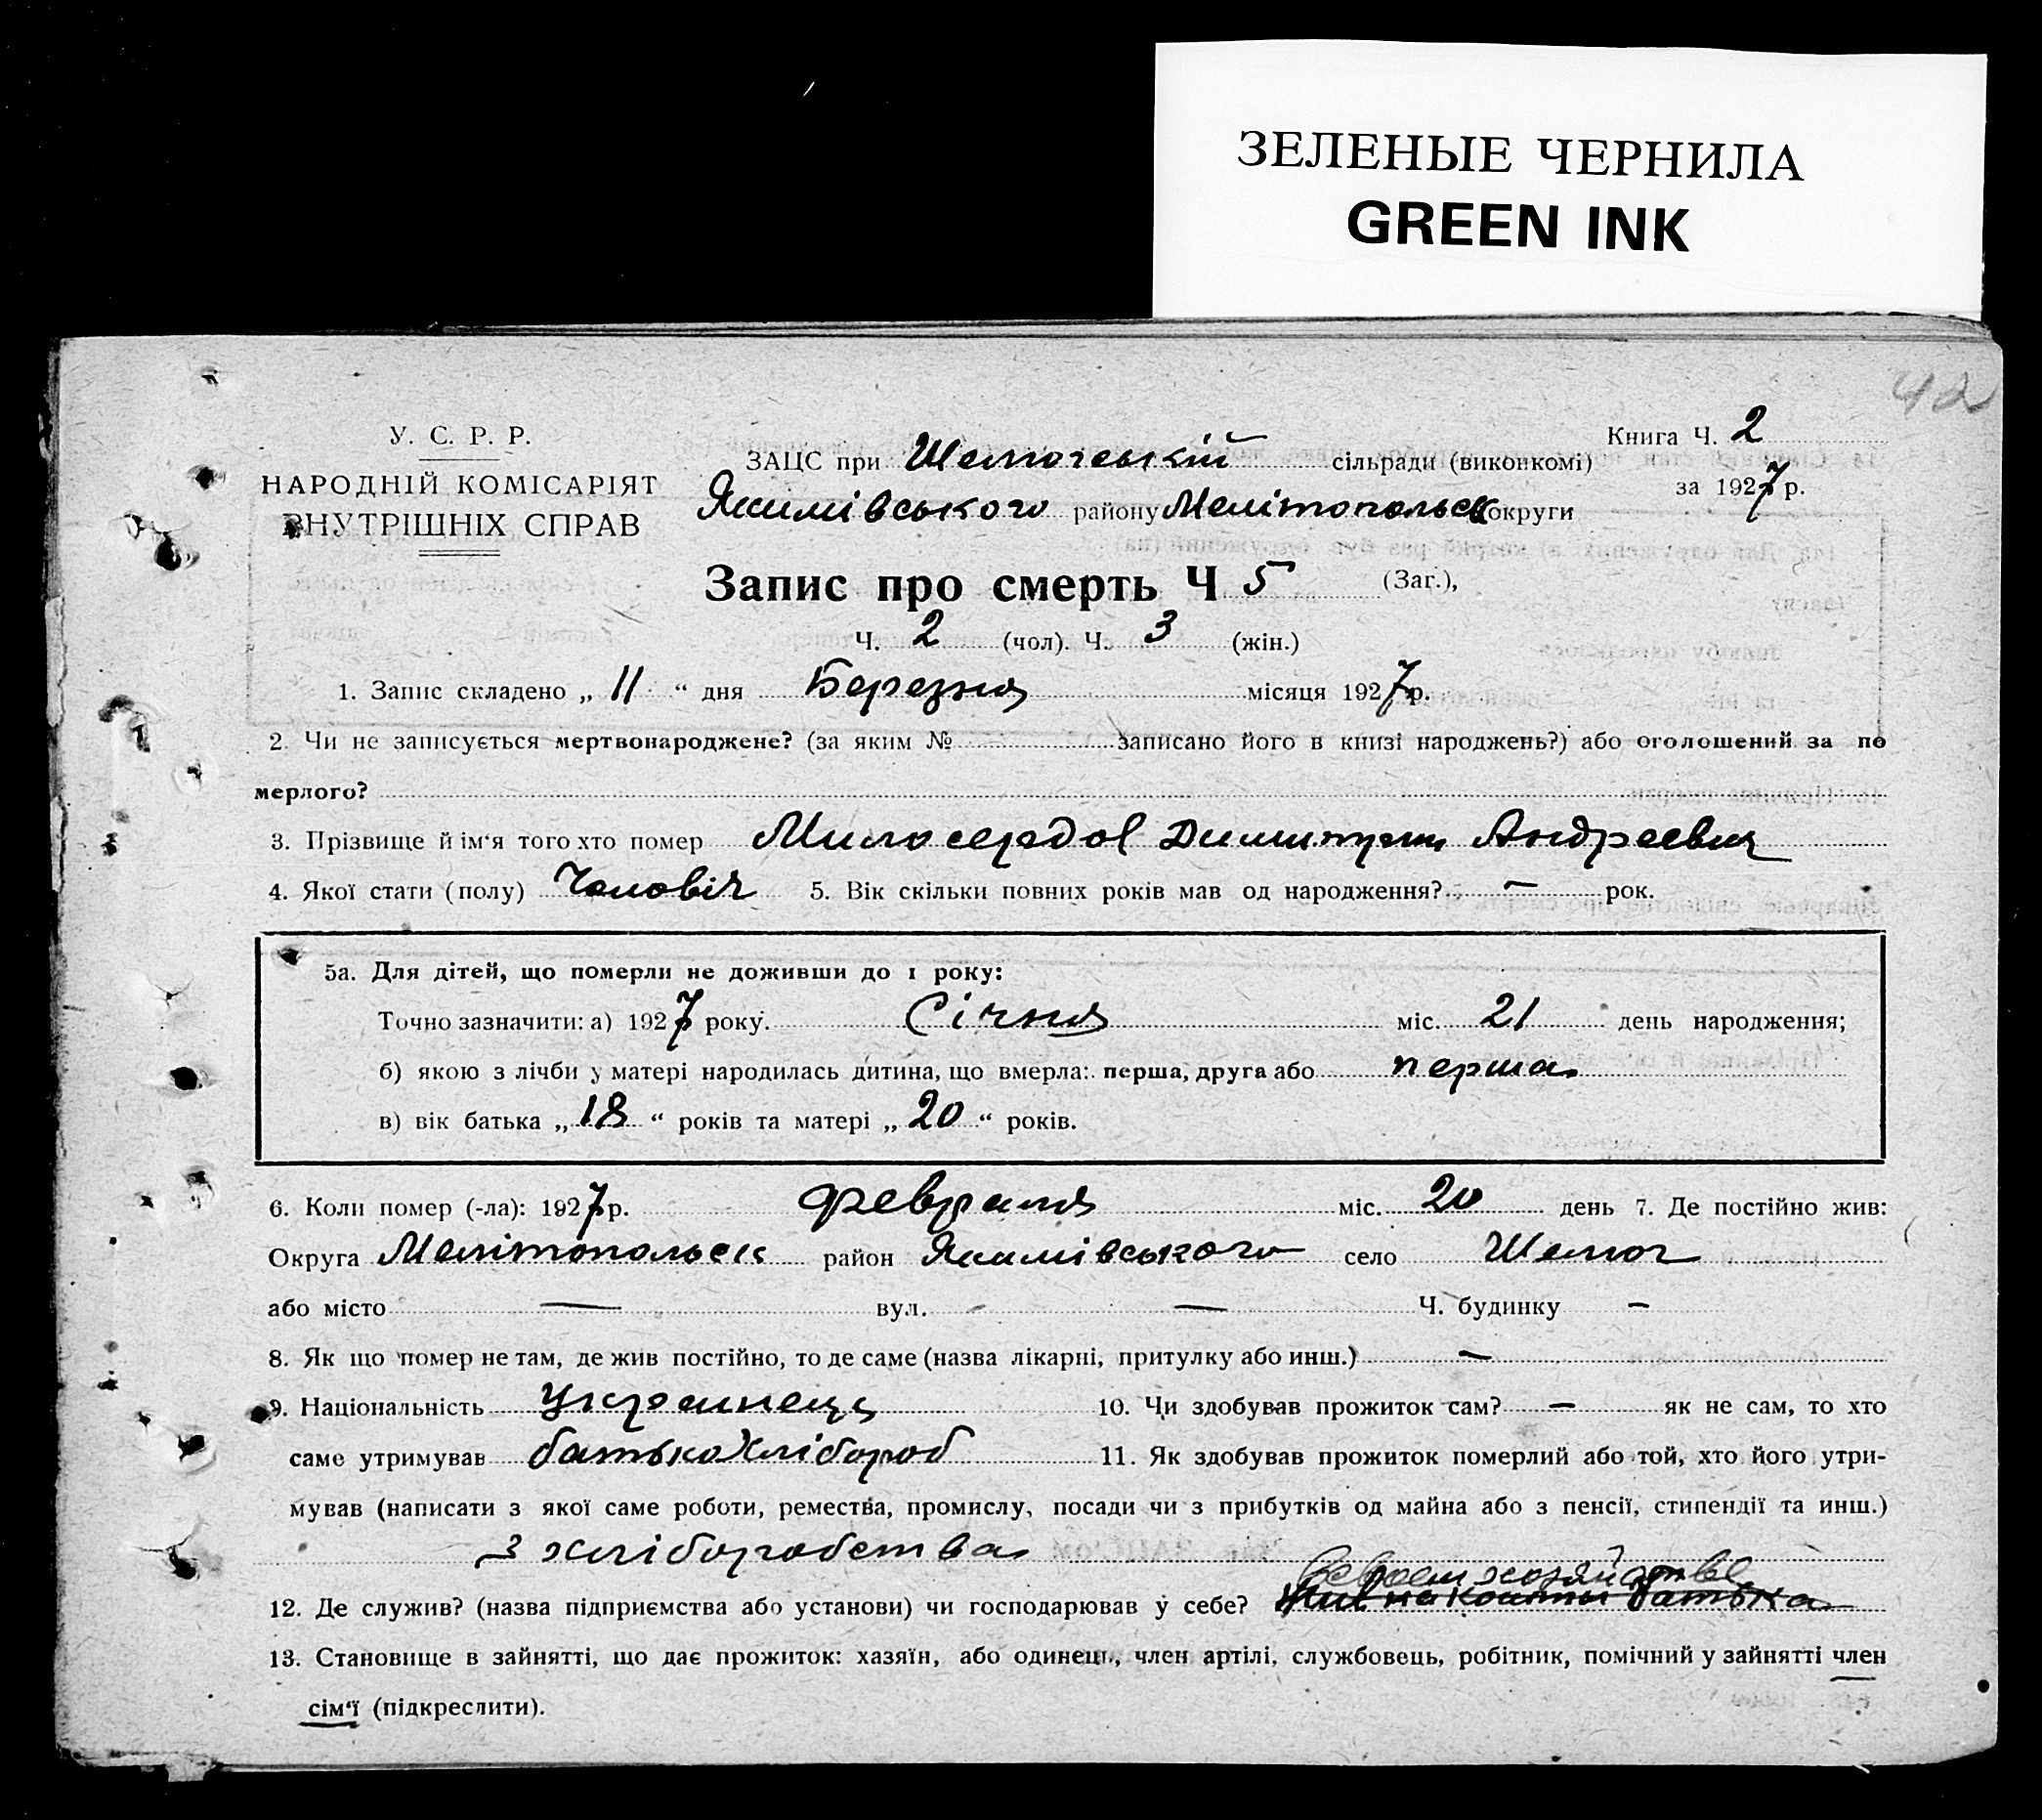 ЗЕЛЕНЫЕ ЧЕРНИЛА
GREEN INK
42
У. С. Р. Р.
НАРОДНІЙ КОМІСАРІЯТ
ВНУТРІШНІХ СПРАВ
Книга Ч. 2
за 1927 р.
ЗАЦС при Шелюгській сільради (виконкомі)
Якимівського району Мелітопольськ округи
Запис про смерть Ч 5 (Заг.),
Ч. 2 (чол). Ч. 3 (жін.)
1. Запис складено „ 11 “ дня Березня місяця 1927 р.
2. Чи не записується мертвонароджене? (за яким № записано його в книзі народжень?) або оголошений за по
мерлого?
3. Прізвище й ім‘я того хто помер Милосердов Димитрий Андреевич
4. Якої стати (полу) Чоловіч 5. Вік скільки повних років мав од народження? — рок.
5а. Для дітей, що померли не доживши до 1 року:
Точно зазначити: а) 1927 року. Січня міс. 21 день народження;
б) якою з лічби у матері народилась дитина, що вмерла: перша, друга або перша
в) вік батька „ 18 “ років та матері „ 20 “ років.
6. Коли помер (-ла): 1927 р. февраля міс. 20 день 7. Де постійно жив:
Округа Мелітопольськ район Якимівського село Шелюг
або місто — вул. — Ч. будинку —
8. Як що помер не там, де жив постійно, то де саме (назва лікарні, притулку або инш.) —
9. Національність Украинець 10. Чи здобував прожиток сам? — як не сам, то хто
саме утримував батько хлібороб 11. Як здобував прожиток померлий або той, хто його утри-
мував (написати з якої саме роботи, ремества, промислу, посади чи з прибутків од майна або з пенсії, стипендії та инш.)
З хліборобства
В своем хозяйстве
12. Де служив? (назва підприємства або установи) чи господарював у себе? Жив на кошты батька
13. Становище в зайнятті, що дає прожиток: хазяїн, або одинець, член артілі, службовець, робітник, помічний у зайнятті член
сім‘ї (підкреслити).